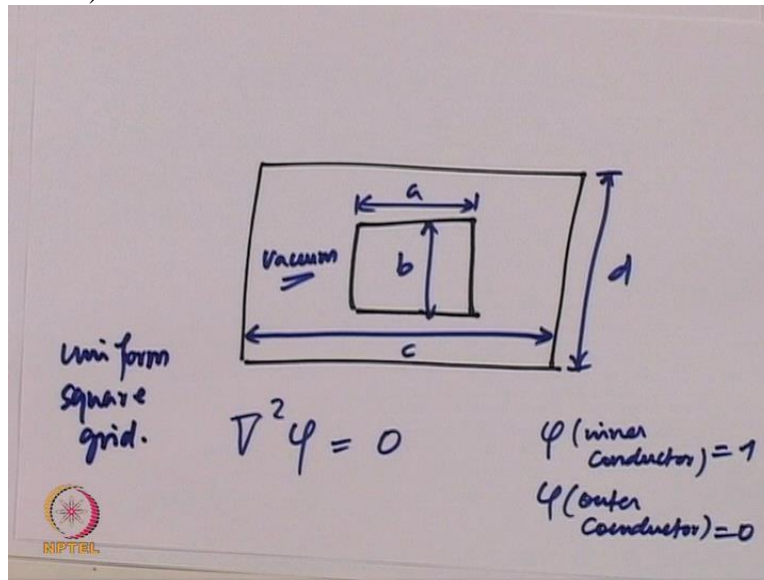 a
Vacuum
b
d
c
uniform
square
grid.
∇²φ = 0
φ(inner
conductor) = 1
φ(outer
Coenductor) = 0
NPTEL